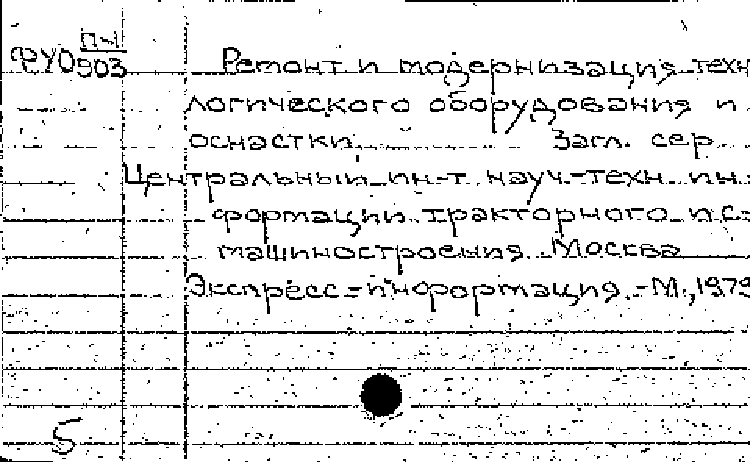 ФУО П-1
903
Ремонт и модернизация техн
логического оборудования и
оснастки Загл. сер
Центральный ин-т науч.-техн. ин-
формации тракторного и с-
машиностроения. Москва
Экспресс-информация.-М.,1979
5